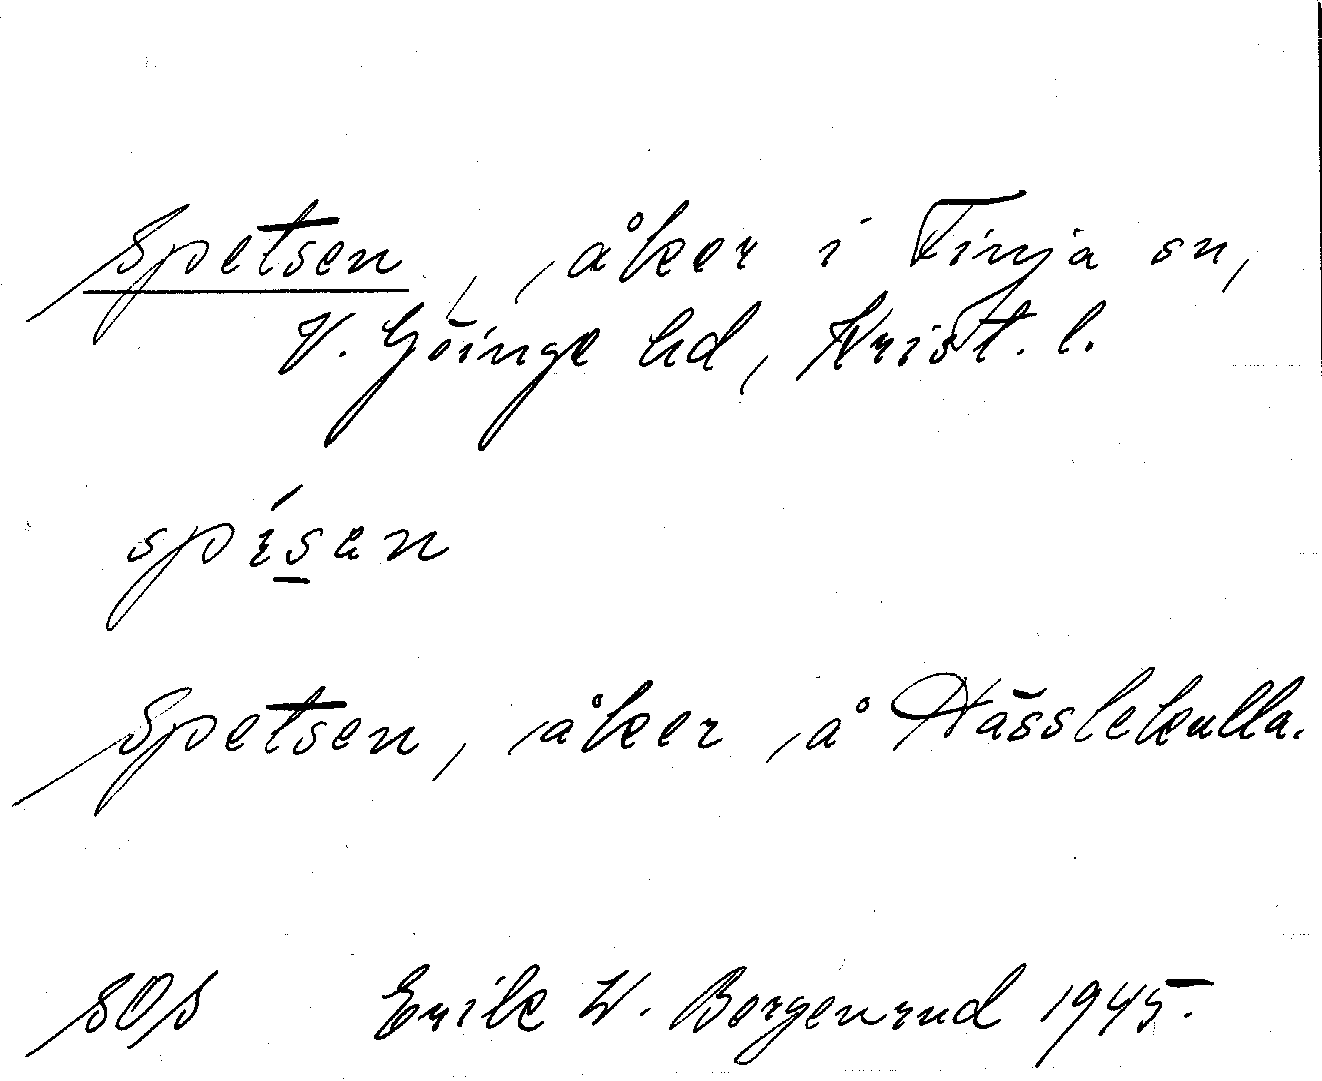 Spetsen, åker i Finja sn,
V. Göinge hd, Krist. l.
Spetsen, åker å Hässlekulla.
SOS Erik W. Bergenrud 1945.